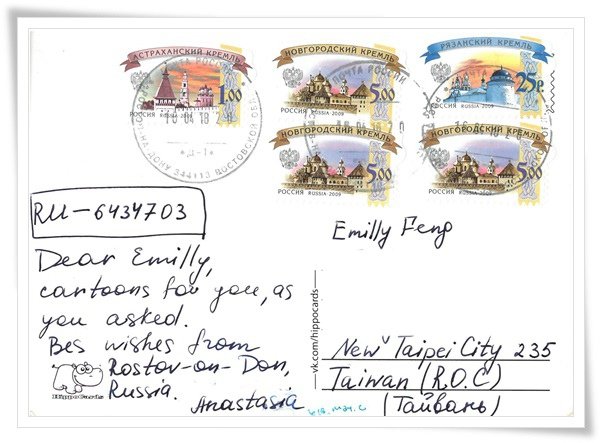 АСТРАХАНСКИЙ КРЕМЛЬ
1.00
РОССИЯ RUSSIA 2009
НОВГОРОДСКИЙ КРЕМЛЬ
5.00
РОССИЯ RUSSIA 2009
РЯЗАНСКИЙ КРЕМЛЬ
25р.
РОССИЯ RUSSIA 2009
НОВГОРОДСКИЙ КРЕМЛЬ
5.00
РОССИЯ RUSSIA 2009
НОВГОРОДСКИЙ КРЕМЛЬ
5.00
РОССИЯ RUSSIA 2009
ПОЧТА РОССИИ
344113
RU-6434703
Dear Emilly,
cartoons for you, as
you asked.
Bes wishes from
Rostov-on-Don,
Russia.
Anastasia
HippoCards
—vk.com/hippocards—
Emilly Feng
New Taipei City 235
Taiwan (R.O.C)
(Тайвань)